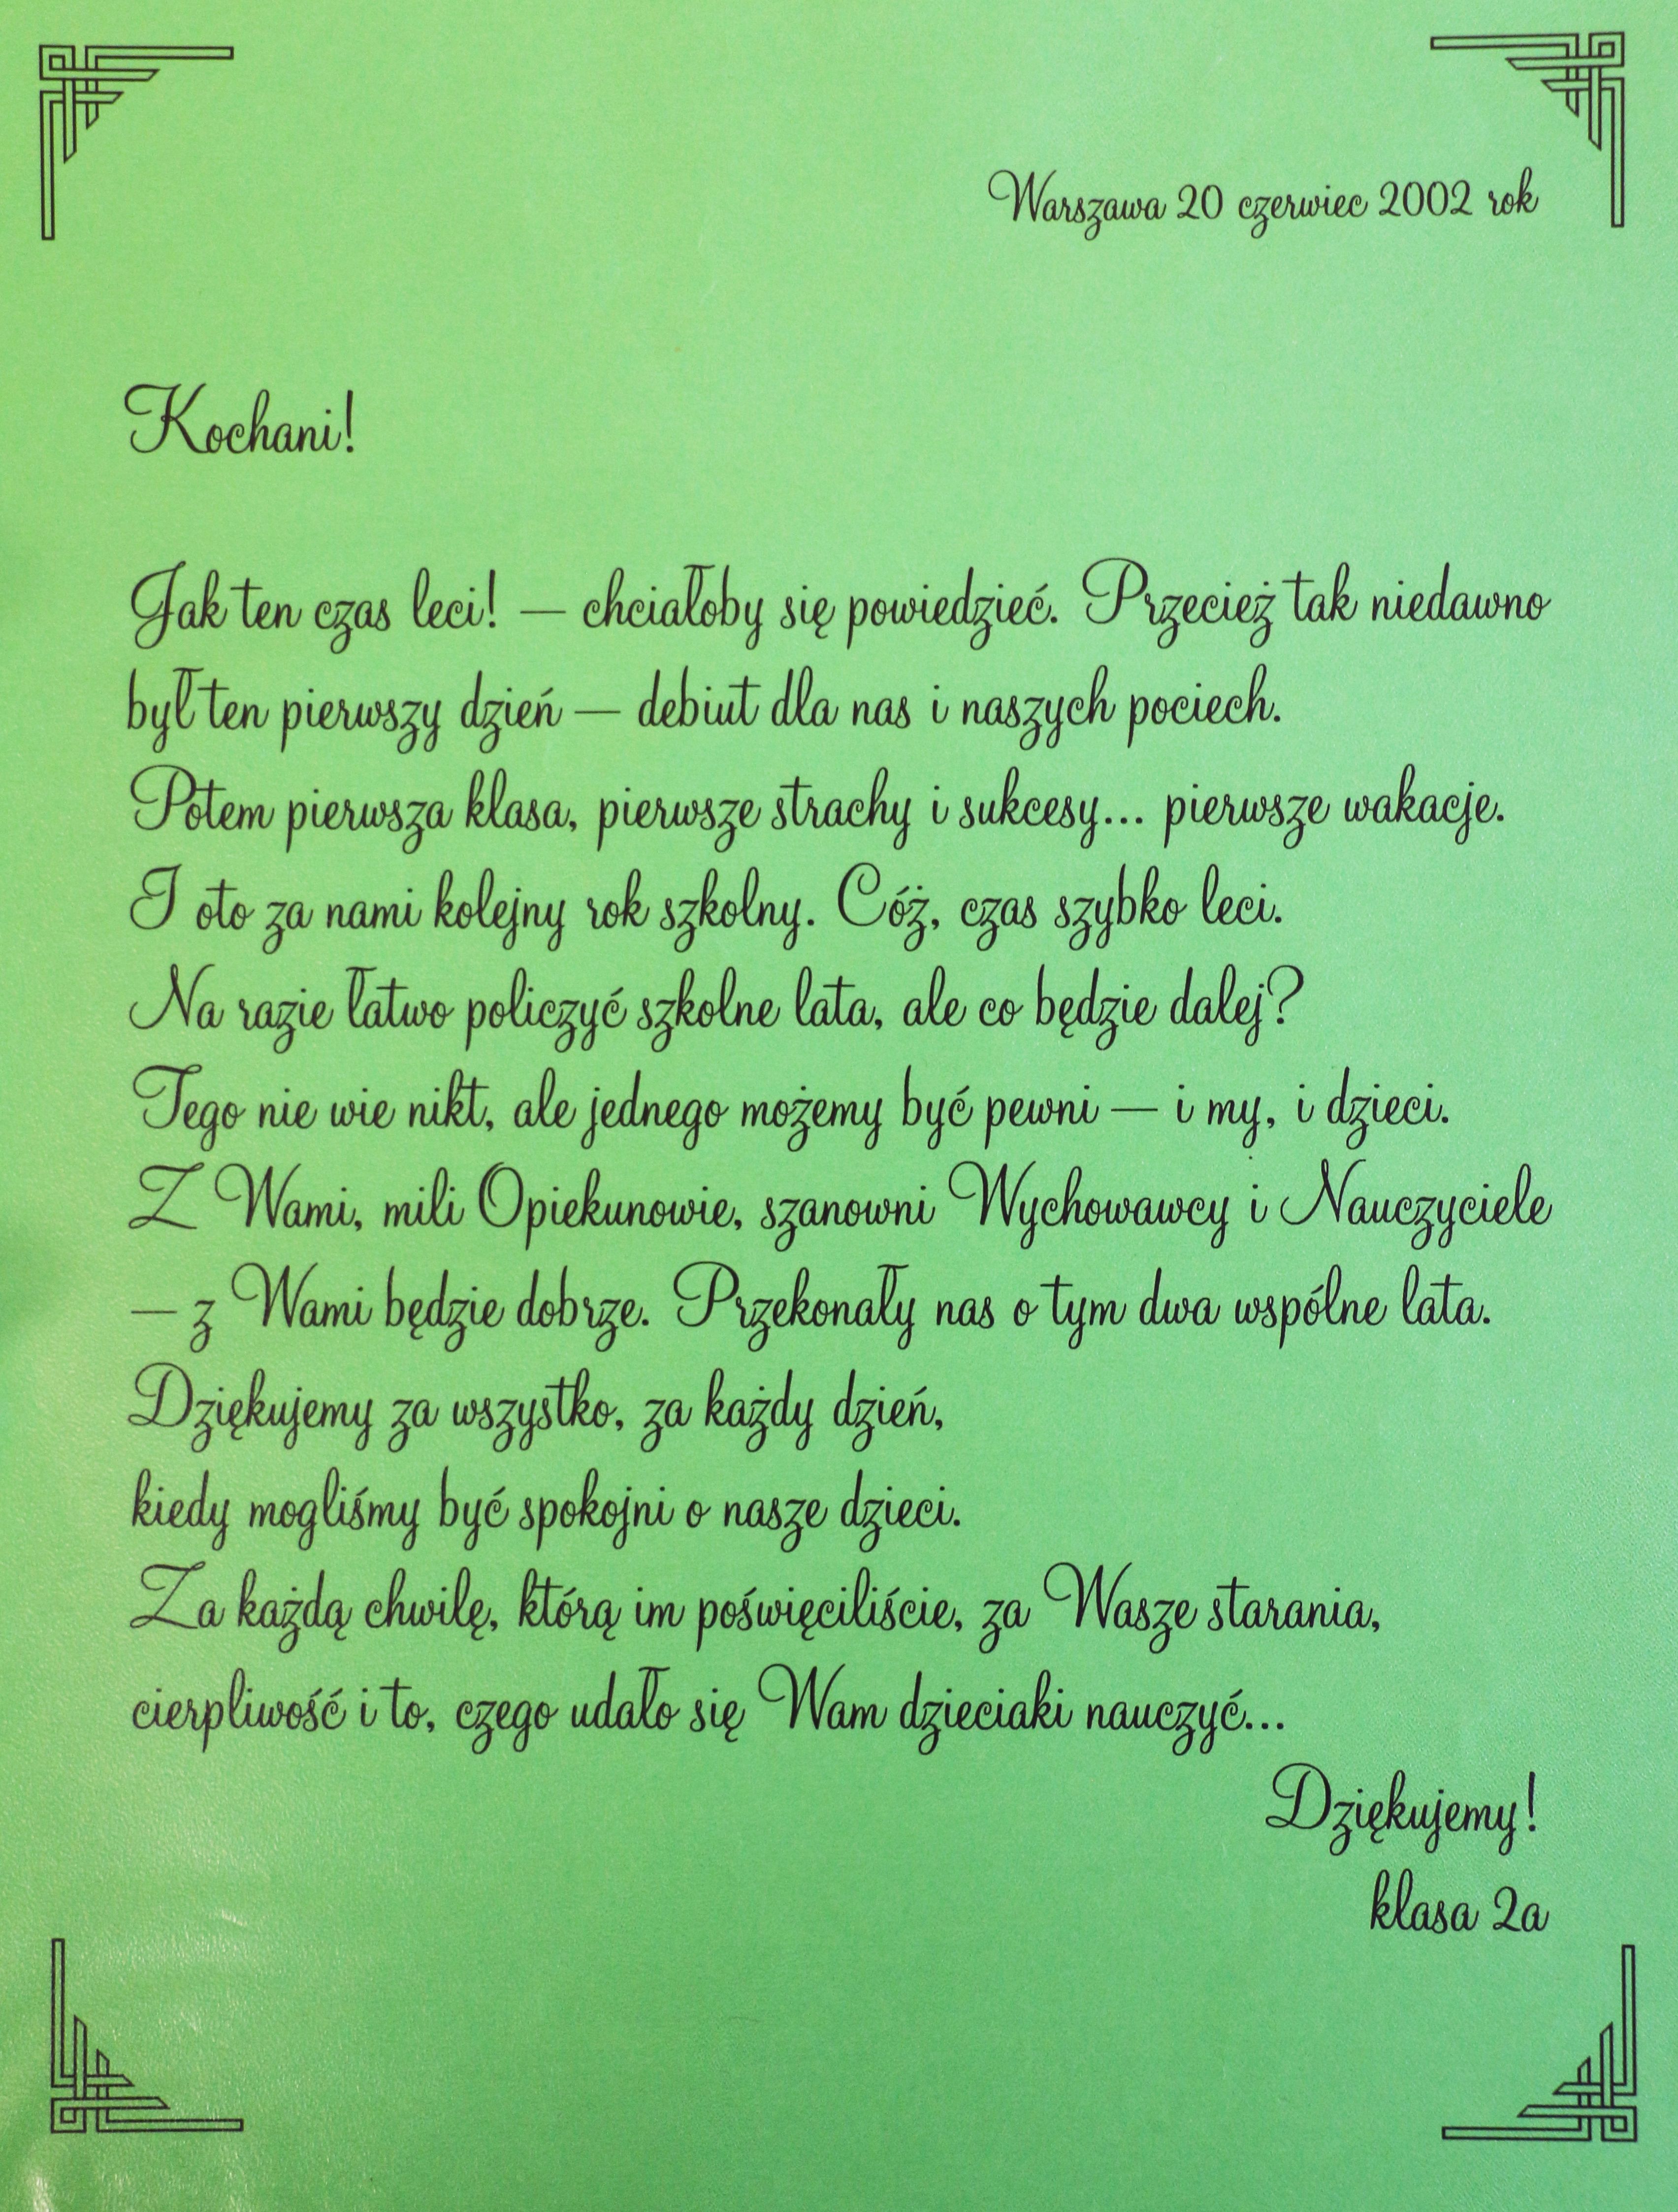 Warszawa 20 czerwiec 2002 rok
Kochani!
Jak ten czas leci! — chciałoby się powiedzieć. Przecież tak niedawno
był ten pierwszy dzień — debiut dla nas i naszych pociech.
Potem pierwsza klasa, pierwsze strachy i sukcesy... pierwsze wakacje.
I oto za nami kolejny rok szkolny. Cóż, czas szybko leci.
Na razie łatwo policzyć szkolne lata, ale co będzie dalej?
Tego nie wie nikt, ale jednego możemy być pewni — i my, i dzieci.
Z Wami, mili Opiekunowie, szanowni Wychowawcy i Nauczyciele
— z Wami będzie dobrze. Przekonały nas o tym dwa wspólne lata.
Dziękujemy za wszystko, za każdy dzień,
kiedy mogliśmy być spokojni o nasze dzieci.
Za każdą chwilę, którą im poświęciliście, za Wasze starania,
cierpliwość i to, czego udało się Wam dzieciaki nauczyć...
Dziękujemy!
klasa 2a